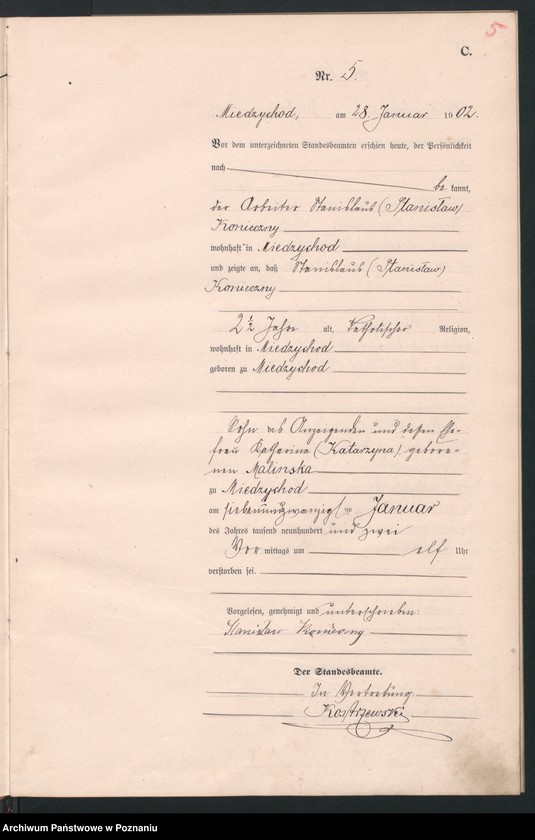 5
C.
Nr. 5.
Miedzychod, am 28 Januar 1902.
Vor dem unterzeichneten Standesbeamten erschien heute, der Persönlichkeit
nach
be kannt,
der Arbeiter Stanislaus (Stanisław)
Konieczny
wohnhaft in Miedzychod
und zeigte an, daß Stanislaus (Stanisław)
Konieczny
2 1/2 Jahre alt, katholischer Religion,
wohnhaft in Miedzychod
geboren zu Miedzychod
Sohn des Anzeigenden und dessen Ehe-
frau Katharina (Katarzyna) gebore-
nen Malinska
zu Miedzychod
am siebenundzwanzigsten Januar
des Jahres tausend neunhundert und zwei
Vor mittags um elf Uhr
verstorben sei.
Vorgelesen, genehmigt und unterschrieben:
Stanisław Konieczny
Der Standesbeamte.
In Vertretung
Kostrzewski
Archiwum Państwowe w Poznaniu